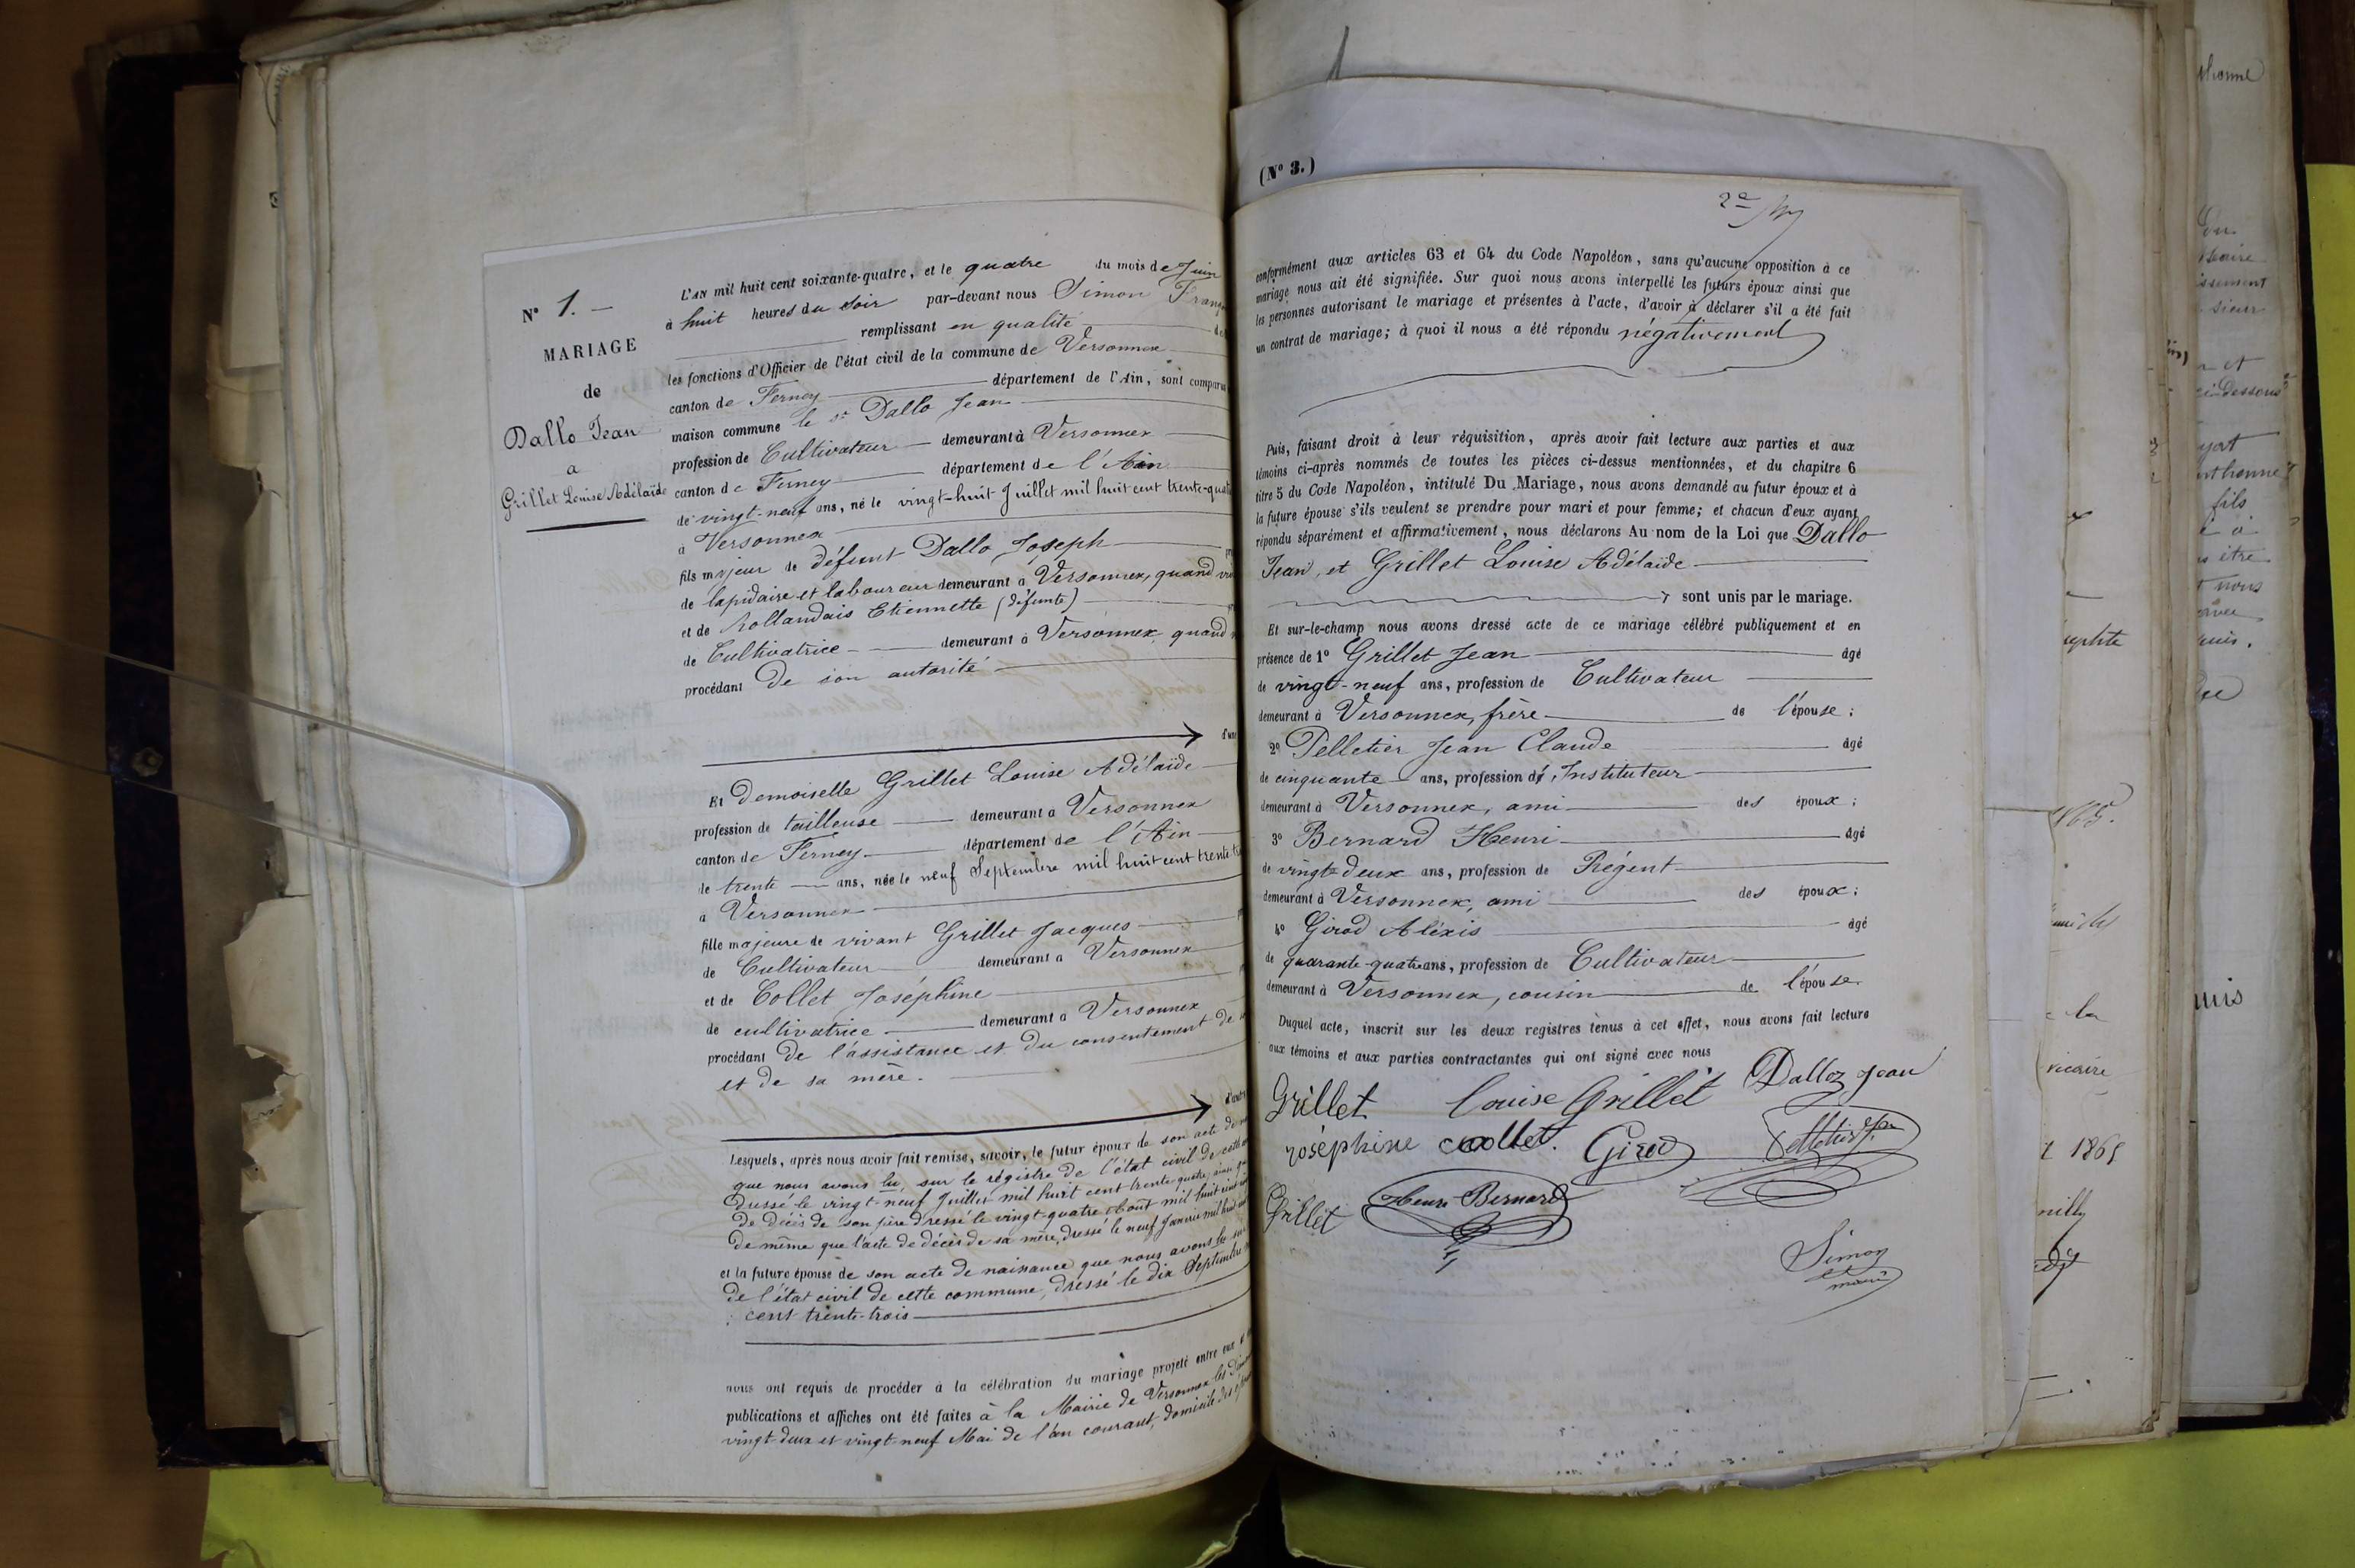 N° 1. —
MARIAGE
de
Dallo Jean
a
Grillet Louise Adélaïde
L'AN mil huit cent soixante-quatre, et le quatre du mois de Juin
à huit heures du soir par-devant nous Simon
remplissant en qualité
les fonctions d'Officier de l'état civil de la commune de Versonnex
canton de Ferney département de l'Ain, sont
maison commune le sr Dallo Jean
profession de Cultivateur demeurant à Versonnex
canton de Ferney département de l'Ain
de vingt-neuf ans, né le vingt-huit Juillet mil huit cent
à Versonnex
fils majeur de défunt Dallo Joseph
de lapidaire et laboureur demeurant à Versonnex, quand
et de Rollandais Etiennette (défunte)
de Cultivatrice demeurant à Versonnex, quand
procédant De son autorité
Et Demoiselle Grillet Louise Adélaïde
profession de tailleuse demeurant à Versonnex
canton de Ferney département de l'Ain
de trente ans, née le neuf Septembre mil huit cent
à Versonnex
fille majeure de vivant Grillet Jacques
de Cultivateur demeurant à Versonnex
et de Collet Joséphine
de cultivatrice demeurant à Versonnex
procédant De l'assistance et du consentement de
et de sa mère.
Lesquels, après nous avoir fait remise, savoir, le futur époux de son acte de
que nous avons lu, sur le régistre de l'état civil de
Dressé le vingt-neuf Juillet mil huit cent trente quatre,
De décès de son père dressé le vingt-quatre Août mil huit
De même que l'acte de décès de sa mère, dressé le neuf Janvier mil
et la future épouse de son acte de naissance que nous avons lu
De l'état civil de cette commune, dressé le dix Septembre
cent trente-trois
nous ont requis de procéder à la célébration du mariage projeté entre eux
publications et affiches ont été faites à la Mairie de Versonnex les
vingt-deux et vingt-neuf Mai de l'an courant, domicile des
(N° 3.)
conformément aux articles 63 et 64 du Code Napoléon, sans qu'aucune opposition à ce
mariage nous ait été signifiée. Sur quoi nous avons interpellé les futurs époux ainsi que
les personnes autorisant le mariage et présentes à l'acte, d'avoir à déclarer s'il a été fait
un contrat de mariage; à quoi il nous a été répondu négativement
Puis, faisant droit à leur réquisition, après avoir fait lecture aux parties et aux
témoins ci-après nommés de toutes les pièces ci-dessus mentionnées, et du chapitre 6
titre 5 du Code Napoléon, intitulé Du Mariage, nous avons demandé au futur époux et à
la future épouse s'ils veulent se prendre pour mari et pour femme; et chacun d'eux ayant
répondu séparément et affirmativement, nous déclarons Au nom de la Loi que Dallo
Jean, et Grillet Louise Adélaïde
sont unis par le mariage.
Et sur-le-champ nous avons dressé acte de ce mariage célébré publiquement et en
présence de 1° Grillet Jean âgé
de vingt-neuf ans, profession de Cultivateur
demeurant à Versonnex, frère de l'épouse;
2° Pelletier Jean Claude âgé
de cinquante ans, profession d'Instituteur
demeurant à Versonnex, ami des époux;
3° Bernard Henri âgé
de vingt-deux ans, profession de Régent
demeurant à Versonnex, ami des époux;
4° Girod Aléxis âgé
de quarante-quatre ans, profession de Cultivateur
demeurant à Versonnex, cousin de l'épouse.
Duquel acte, inscrit sur les deux registres tenus à cet effet, nous avons fait lecture
aux témoins et aux parties contractantes qui ont signé avec nous
Dalloz Jean
Grillet Louise Grillet
Joséphine Collet. Girod Pelletier
Grillet Henri Bernard
Simon
maire